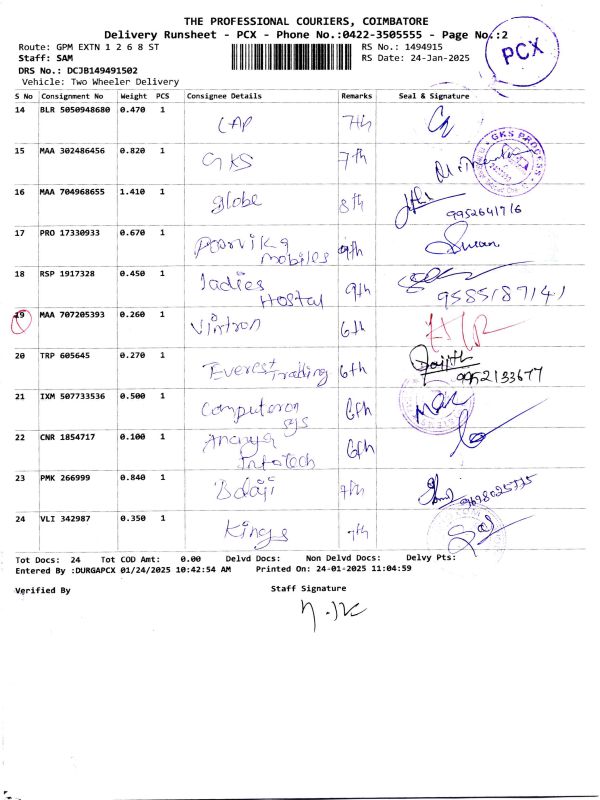 THE PROFESSIONAL COURIERS, COIMBATORE
Delivery Runsheet - PCX - Phone No.:0422-3505555 - Page No.:2
PCX
Route: GPM EXTN 1 2 6 8 ST RS No.: 1494915
Staff: SAM RS Date: 24-Jan-2025
DRS No.: DCJB149491502
Vehicle: Two Wheeler Delivery
S No Consignment No Weight PCS Consignee Details Remarks Seal & Signature
14 BLR 5050948680 0.470 1 LAP 7th
15 MAA 302486456 0.820 1 GKS 7th GKS PROCESS
16 MAA 704968655 1.410 1 Globe 8th 9952641716
17 PRO 17330933 0.670 1 Poorvika Mobiles 9th
18 RSP 1917328 0.450 1 Ladies Hostal 9th 9585187141
19 MAA 707205393 0.260 1 6th
20 TRP 605645 0.270 1 Everest Trading 6th 9952133677
21 IXM 507733536 0.500 1 Computeron sys 6th
22 CNR 1854717 0.100 1 Ananya Infotech 6th
23 PMK 266999 0.840 1 9th
24 VLI 342987 0.350 1 Kings 7th
Tot Docs: 24 Tot COD Amt: 0.00 Delvd Docs: Non Delvd Docs: Delvy Pts:
Entered By :DURGAPCX 01/24/2025 10:42:54 AM Printed On: 24-01-2025 11:04:59
Verified By Staff Signature